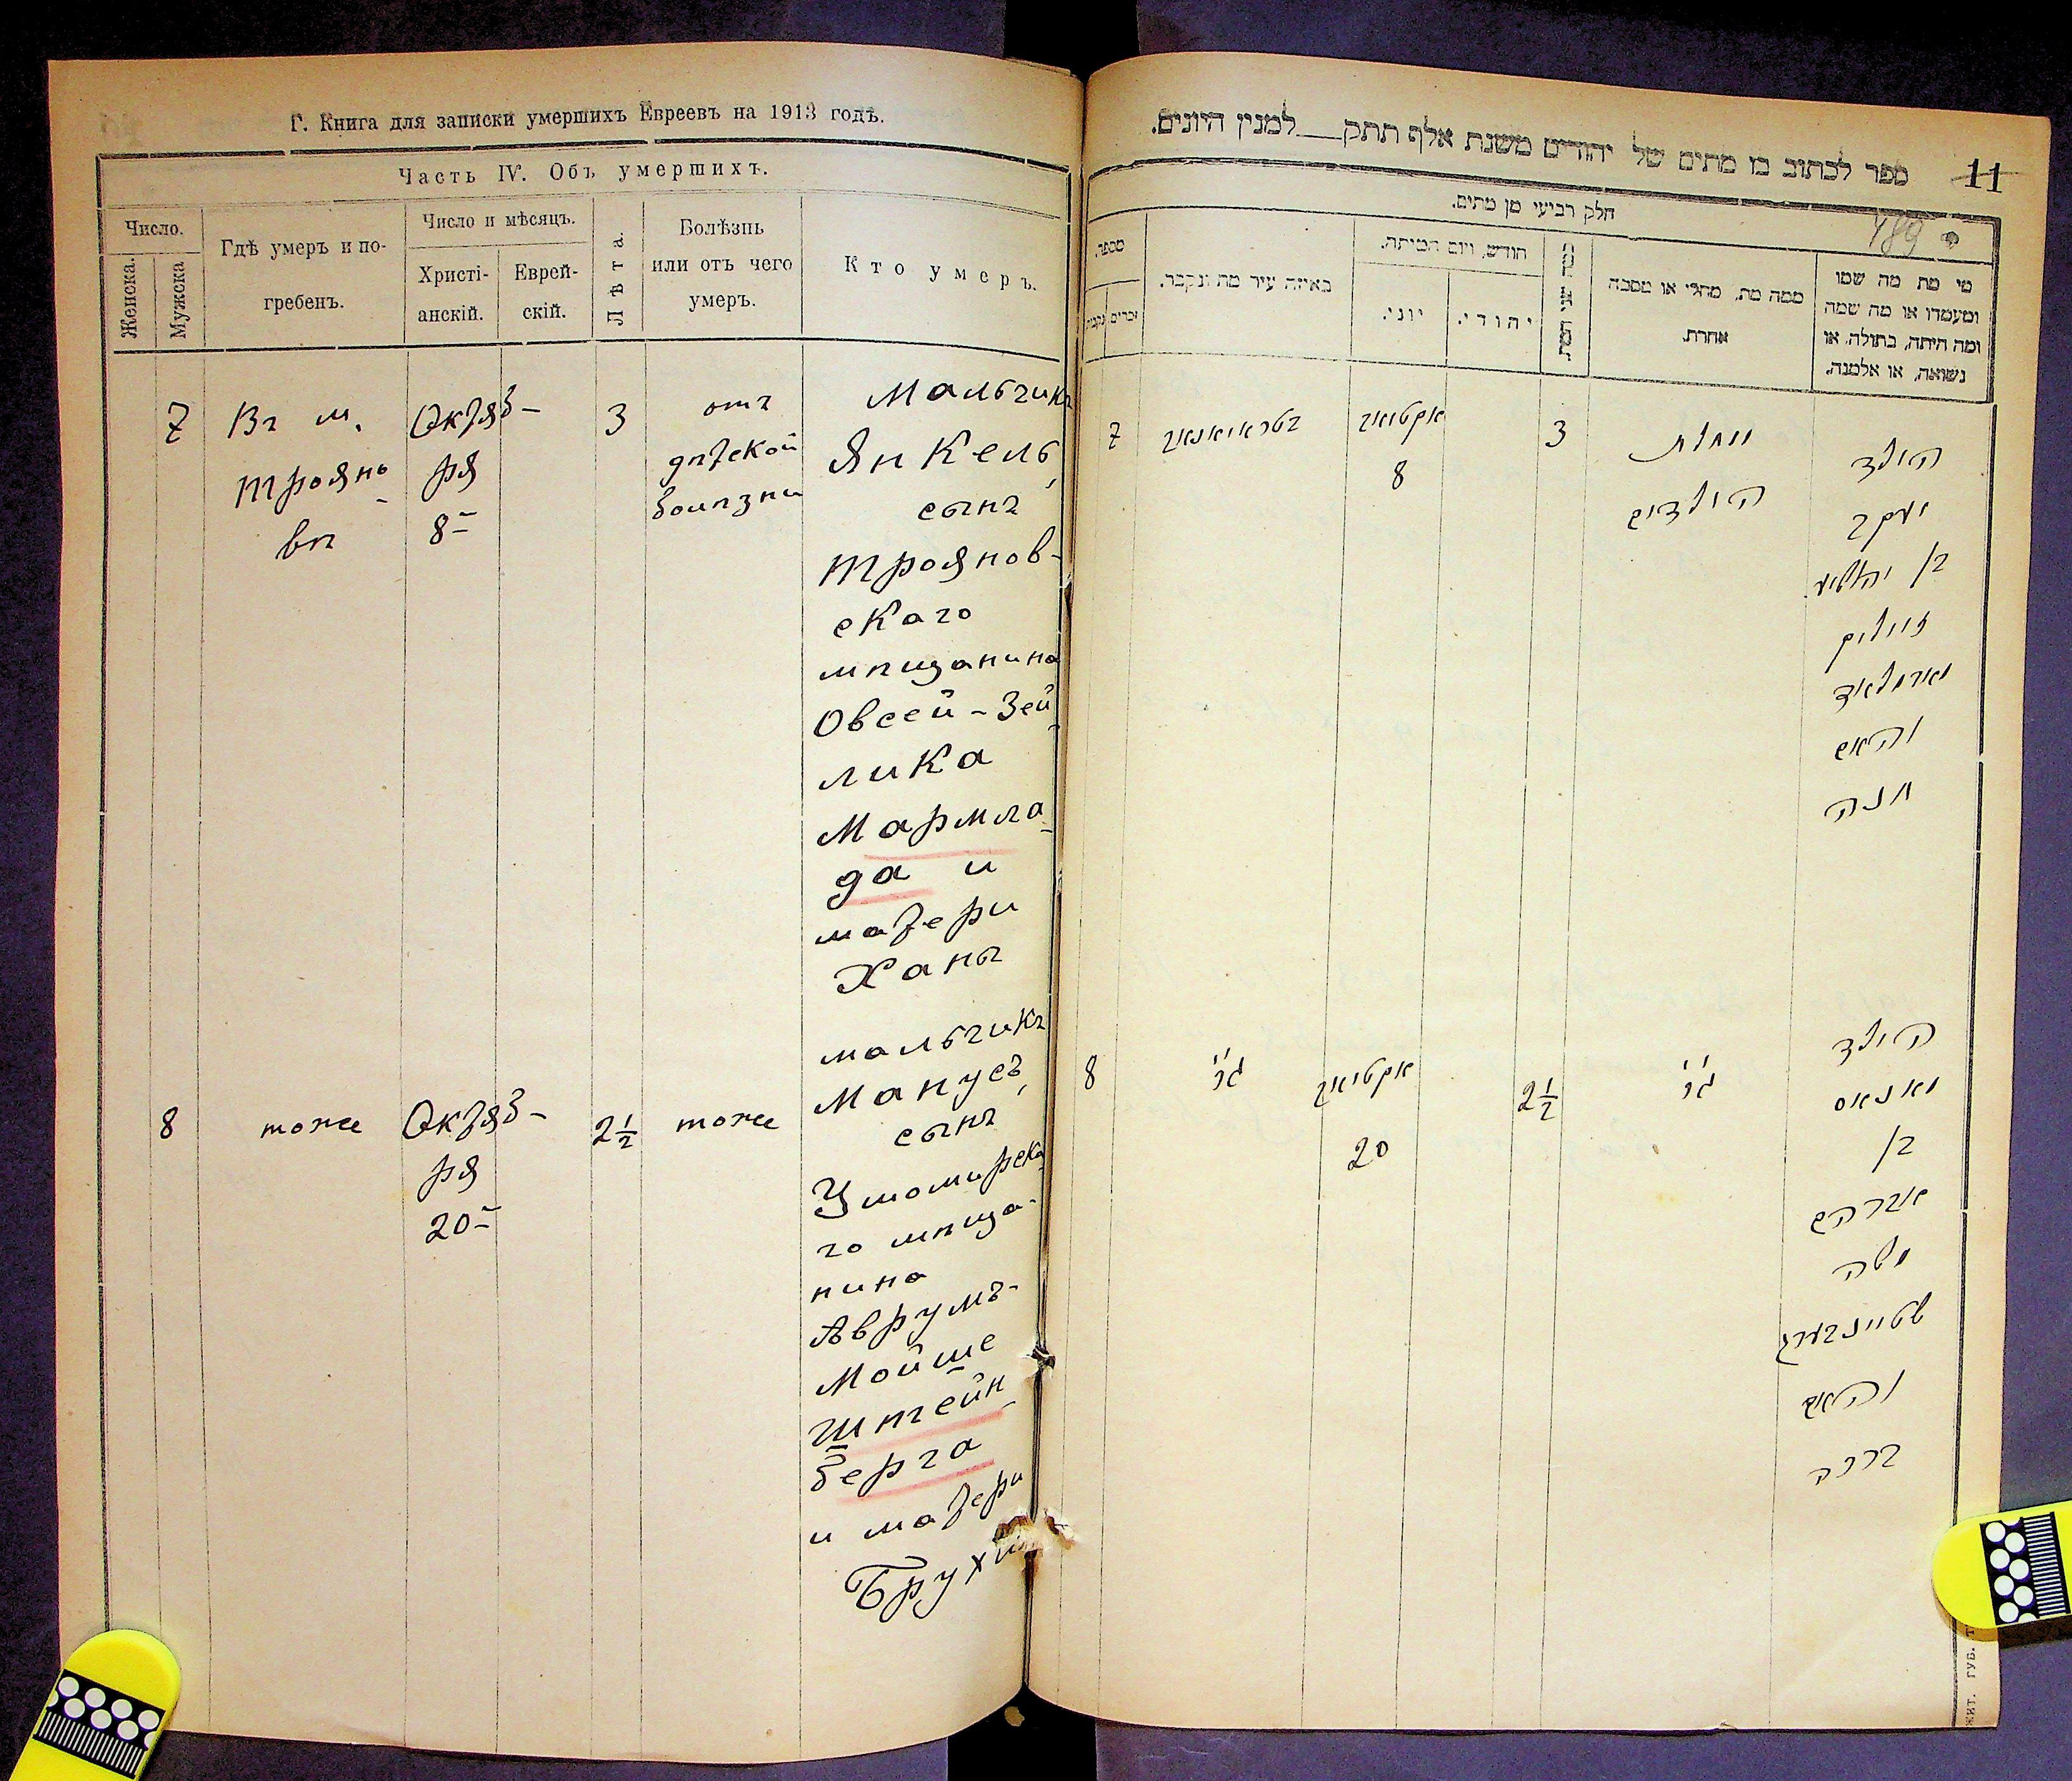 Г. Книга для записки умершихъ Евреевъ на 1913 годъ.
Часть IV. Объ умершихъ.
Число.
Женска.
Мужска
Гдѣ умеръ и по-
гребенъ.
Число и мѣсяцъ.
Христі-
анскій.
Еврей-
скій.
Лѣта.
Болѣзнь
или отъ чего
умеръ.
Кто умеръ.
7
Въ м.
Трояно-
вѣ
Октяб-
ря
8-
3
отъ
дѣтской
болѣзни
Мальчикъ
Янкель,
сынъ
Трояновъ-
скаго
мѣщанина
Овсей-Зей-
лика
Мармла-
да и
матери
Ханы
8
тоже
Октяб-
ря
20-
2½
тоже
мальчикъ
Манусъ,
сынъ
Ушомирска-
го мѣща-
нина
Аврумъ-
Мойше
Штейн-
берга
и матери
Брухи
ספר לכתוב בו מתים של יהודים משנת אלף תתק למנין היונים.
11
489
חלק רביעי מן מתים.
מספר.
נקבות
זכרים
באיזה עיר מת ונקבר.
חודש, ויום המיתה.
יוני.
יהודי.
ממה מת, מחלי או מסבה
אחרת.
מי מת מה שמו
ומעמדו או מה שמה
ומה היתה, בתולה, או
נשואה, או אלמנה.
7
בטראיאנאוו
אקטיאב
8
3
מחלת
הילדים
הילד
יעקב
בן יהושע
זעליג
מארמלאד
והאם
חנה
8
גם
אקטיאב
20
2½
גם
הילד
מאנאס
בן
אברהם
משה
שטיינבערג
והאם
ברכה
ЖИТ. ГУБ. Т